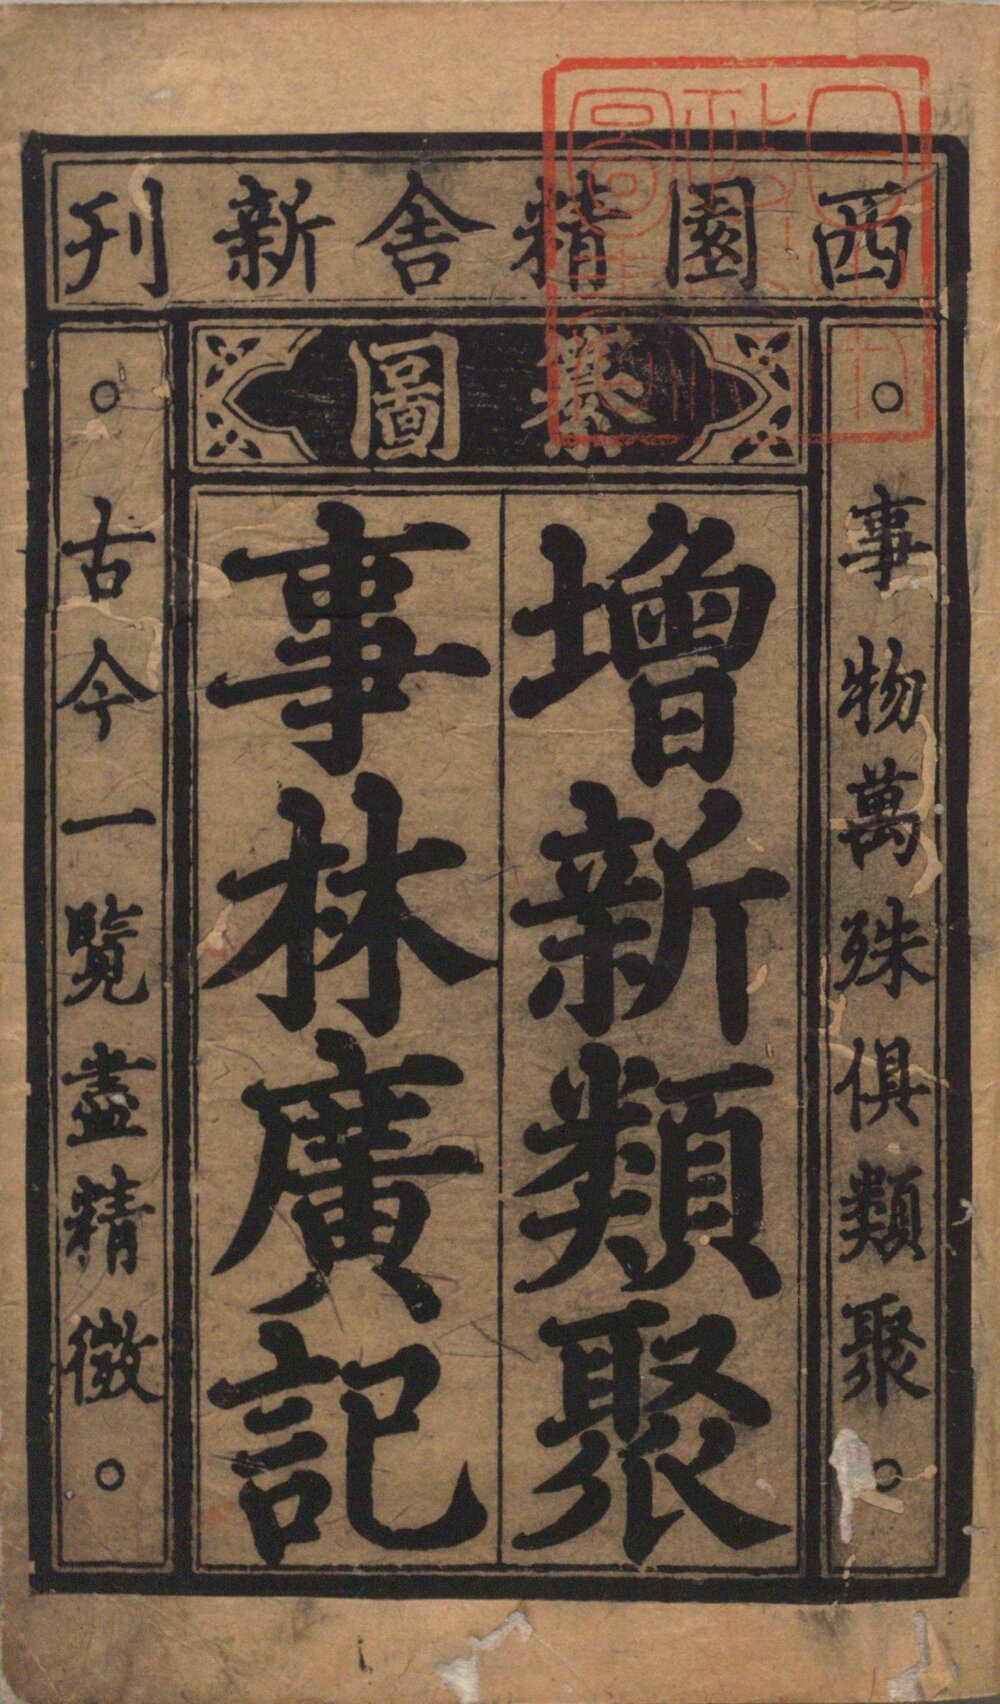 西園精舎新刊
纂圖
○事物萬殊俱類聚○
增新類聚
事林廣記
○古今一覽盡精微○